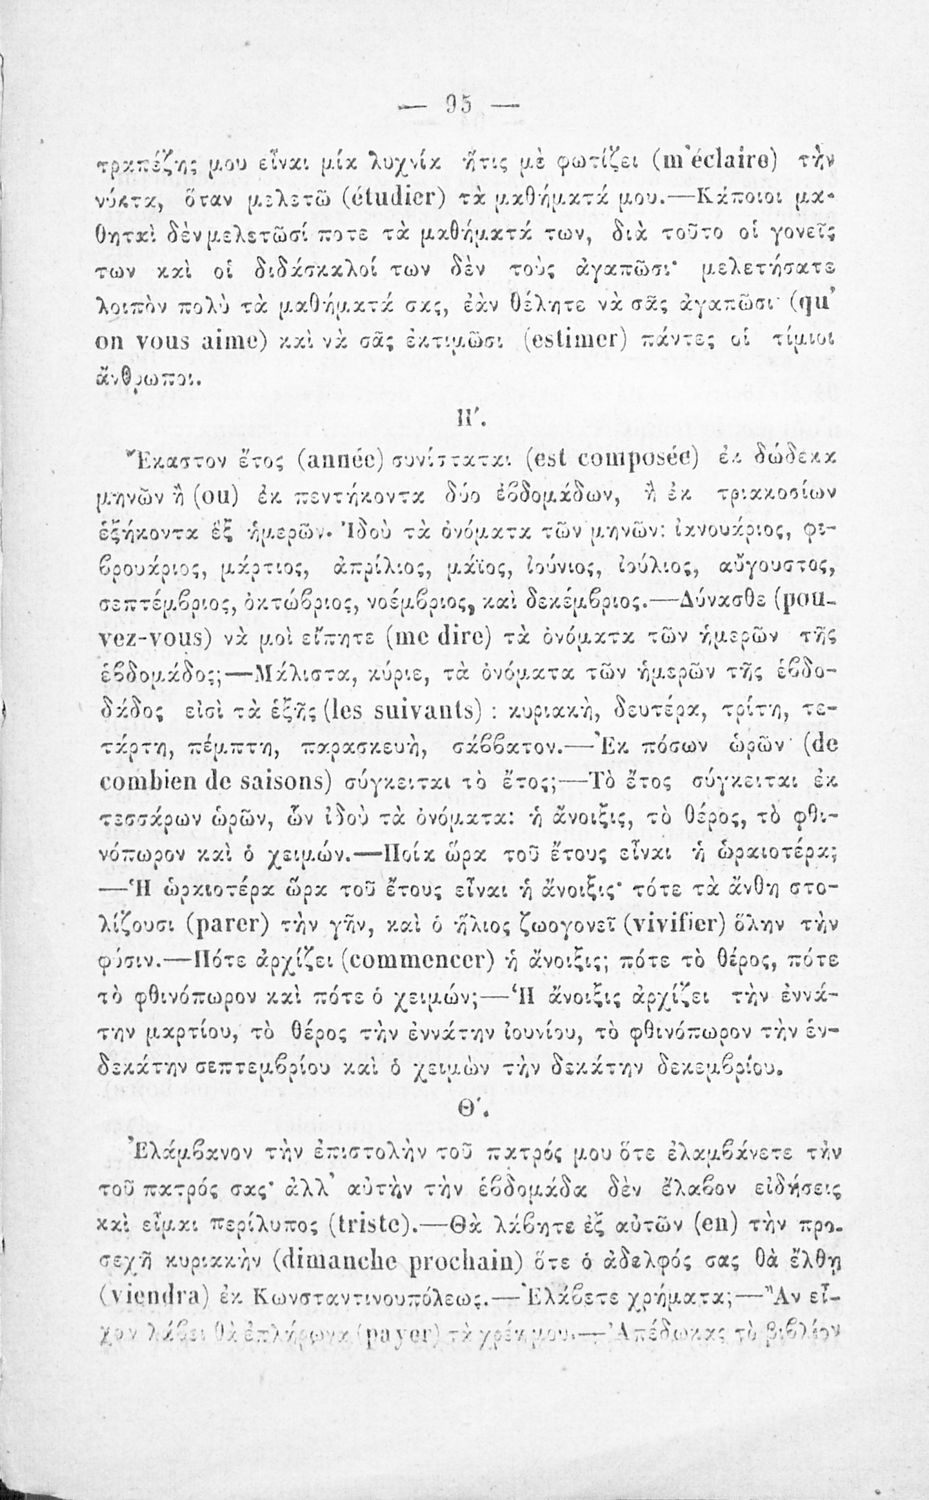 — 95 —
τραπέζης μου εἶναι μία λυχνία ἥτις μὲ φωτίζει (m'éclaire) τὴν
νύκτα, ὅταν μελετῶ (étudier) τὰ μαθήματά μου.—Κάποιοι μα-
θηταὶ δὲν μελετῶσί ποτε τὰ μαθήματά των, διὰ τοῦτο οἱ γονεῖς
των καὶ οἱ διδάσκαλοί των δὲν τοὺς ἀγαπῶσι· μελετήσατε
λοιπὸν πολὺ τὰ μαθήματά σας, ἐὰν θέλητε νὰ σᾶς ἀγαπῶσι (qu'
on vous aime) καὶ νὰ σᾶς ἐκτιμῶσι (estimer) πάντες οἱ τίμιοι
ἄνθρωποι.
Η'.
Ἕκαστον ἔτος (année) συνίσταται (est composée) ἐκ δώδεκα
μηνῶν ἢ (ou) ἐκ πεντήκοντα δύο ἑβδομάδων, ἢ ἐκ τριακοσίων
ἑξήκοντα ἓξ ἡμερῶν. Ἰδοὺ τὰ ὀνόματα τῶν μηνῶν: ἰανουάριος, φε-
βρουάριος, μάρτιος, ἀπρίλιος, μάϊος, ἰούνιος, ἰούλιος, αὔγουστος,
σεπτέμβριος, ὀκτώβριος, νοέμβριος, καὶ δεκέμβριος.—Δύνασθε (pou-
vez-vous) νὰ μοὶ εἴπητε (me dire) τὰ ὀνόματα τῶν ἡμερῶν τῆς
ἑβδομάδος;—Μάλιστα, κύριε, τὰ ὀνόματα τῶν ἡμερῶν τῆς ἑβδο-
δάδος εἰσὶ τὰ ἑξῆς (les suivants) : κυριακὴ, δευτέρα, τρίτη, τε-
τάρτη, πέμπτη, παρασκευὴ, σάββατον.—Ἐκ πόσων ὡρῶν (de
combien de saisons) σύγκειται τὸ ἔτος;—Τὸ ἔτος σύγκειται ἐκ
τεσσάρων ὡρῶν, ὧν ἰδοὺ τὰ ὀνόματα: ἡ ἄνοιξις, τὸ θέρος, τὸ φθι-
νόπωρον καὶ ὁ χειμών.—Ποία ὥρα τοῦ ἔτους εἶναι ἡ ὡραιοτέρα;
—Ἡ ὡραιοτέρα ὥρα τοῦ ἔτους εἶναι ἡ ἄνοιξις· τότε τὰ ἄνθη στο-
λίζουσι (parer) τὴν γῆν, καὶ ὁ ἥλιος ζωογονεῖ (vivifier) ὅλην τὴν
φύσιν.—Πότε ἀρχίζει (commencer) ἡ ἄνοιξις; πότε τὸ θέρος, πότε
τὸ φθινόπωρον καὶ πότε ὁ χειμών;—Ἡ ἄνοιξις ἀρχίζει τὴν ἐννά-
την μαρτίου, τὸ θέρος τὴν ἐννάτην ἰουνίου, τὸ φθινόπωρον τὴν ἑν-
δεκάτην σεπτεμβρίου καὶ ὁ χειμὼν τὴν δεκάτην δεκεμβρίου.
Θ'.
Ἐλάμβανον τὴν ἐπιστολὴν τοῦ πατρός μου ὅτε ἐλαμβάνετε τὴν
τοῦ πατρός σας· ἀλλ' αὐτὴν τὴν ἑβδομάδα δὲν ἔλαβον εἰδήσεις
καὶ εἶμαι περίλυπος (triste).—Θὰ λάβητε ἐξ αὐτῶν (en) τὴν προ-
σεχῆ κυριακὴν (dimanche prochain) ὅτε ὁ ἀδελφός σας θὰ ἔλθῃ
(viendra) ἐκ Κωνσταντινουπόλεως.—Ἐλάβετε χρήματα;—Ἂν εἶ-
χον λάβει θὰ ἐπλήρωνα (payer) τὰ χρέη μου.—Ἀπέδωκας τὸ βιβλίον